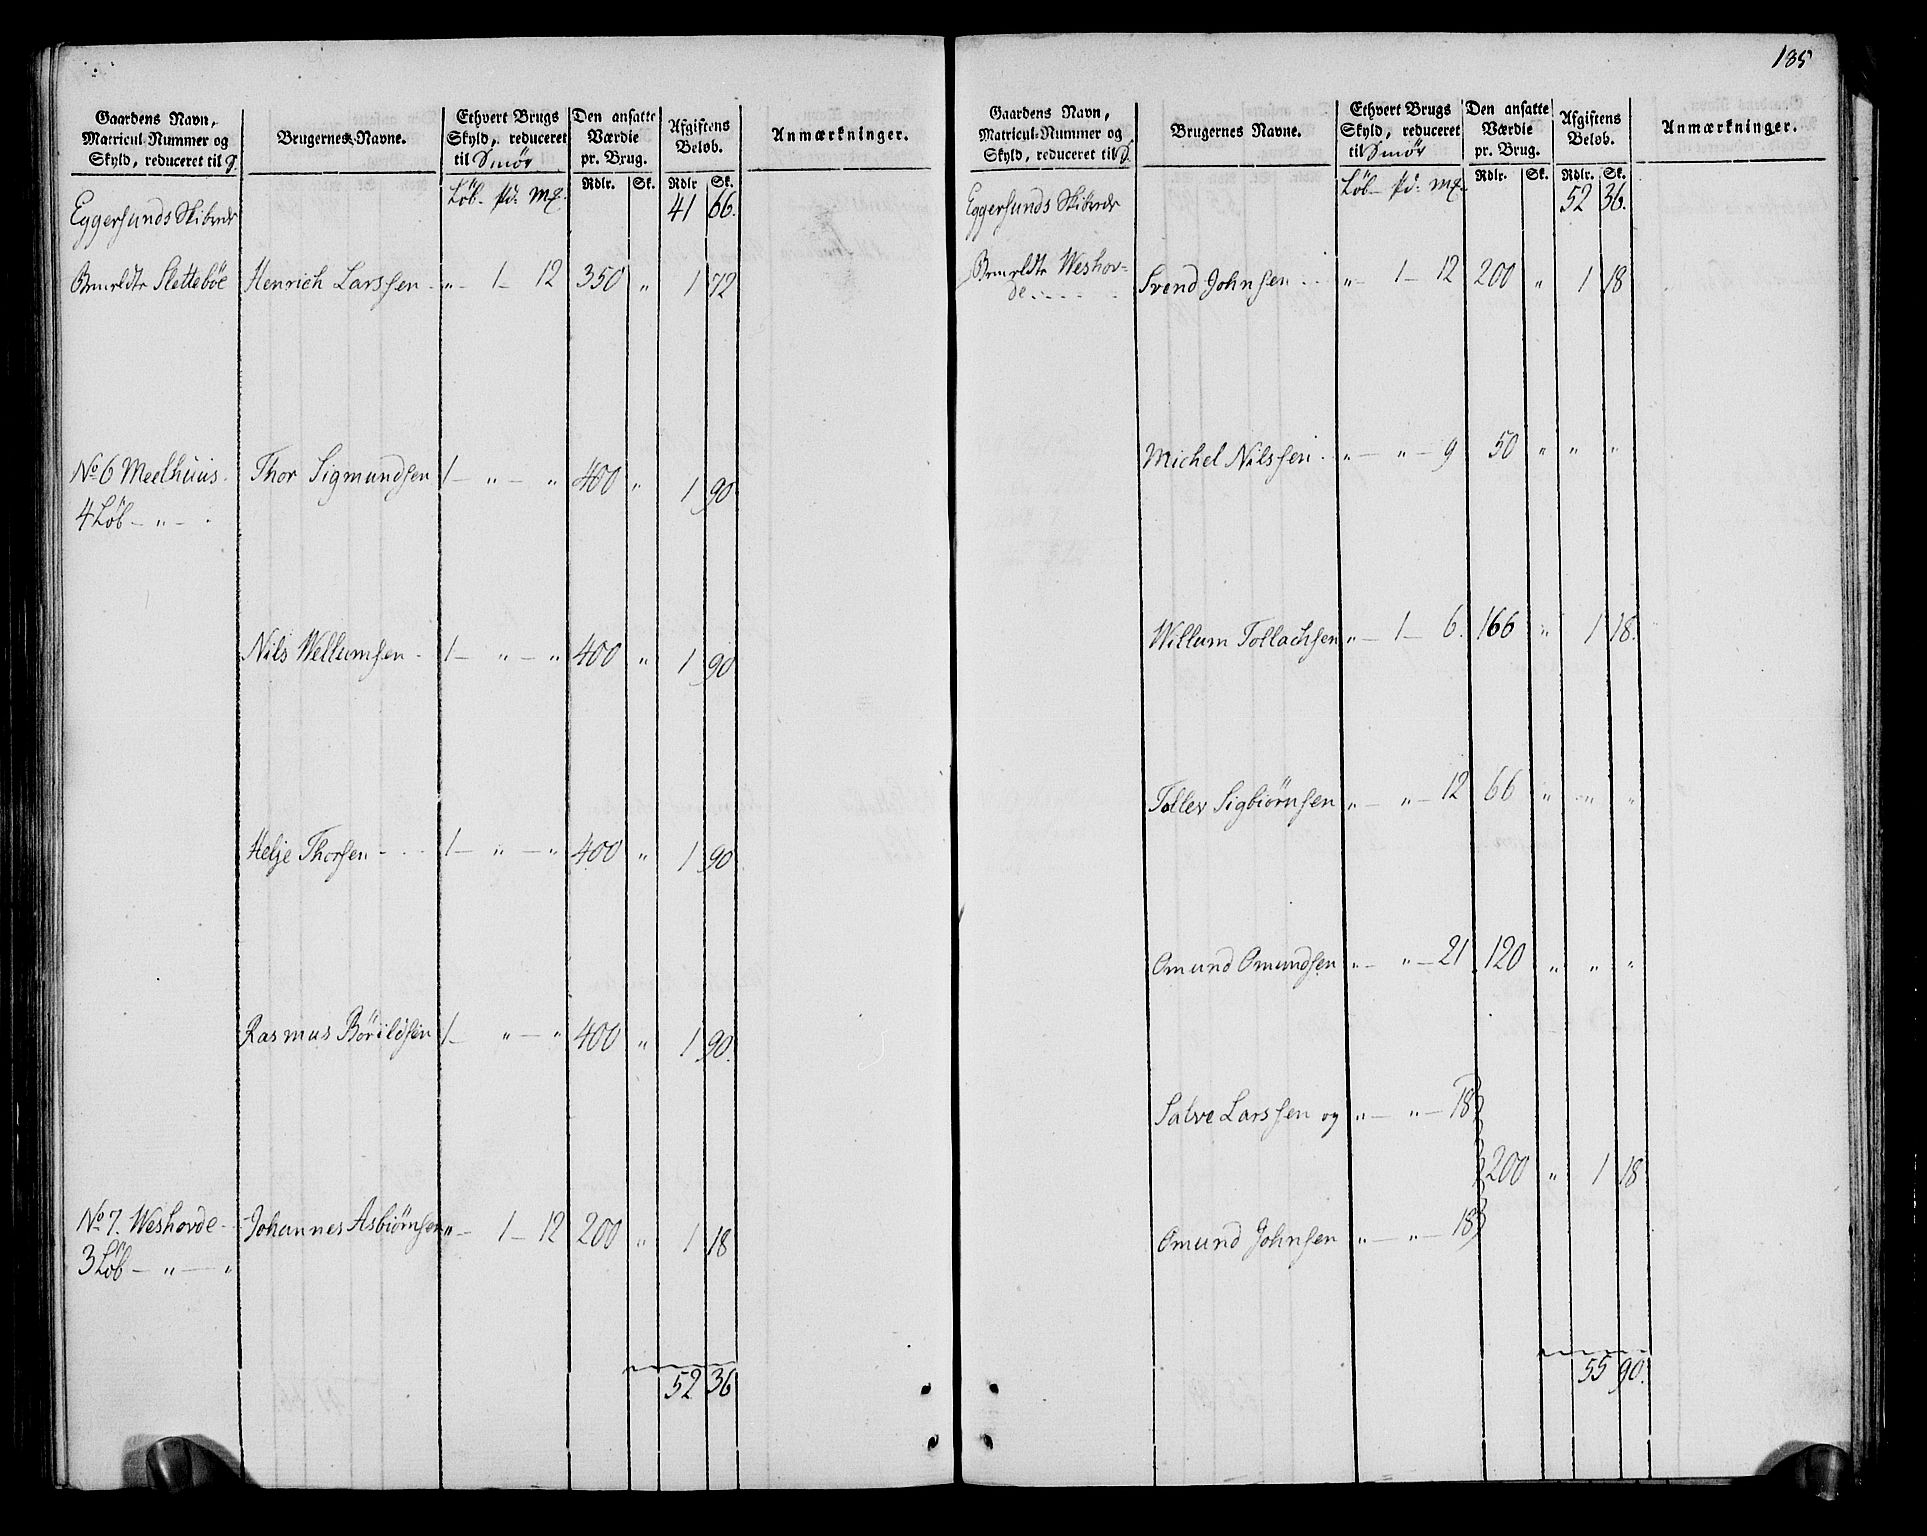 Gaardens Navn, Matricul-Nummer og Skyld, reduceret til | Brugernes Navne. | Ethvert Brugs Skyld, reduceret til Smör | Den ansatte Værdie pr. Brug. | Afgiftens Beløb. | Anmærkninger.
Löb - pd: mk. | Rdlr. | Sk. | Rdlr | Sk.
Eggersunds Skibrede 41 66.
Sletteböe Henrich Larssen - „ - 1 - 12 350 „ 1 72
No 6 Meelhuus. Thor Sigmundsen 1 - „ - „ 400 „ 1 90
4 Löb - „ - .
Nils Wellumsen - 1 - „ - „ 400 „ 1 90
Helje Thorsen - - - 1 - „ - „ 400 „ 1 90
Rasmus 1 - „ - „ 400 „ 1 90.
No 7. Weshovde - Johannes Asbiörnsen „ - 1 - 12 200 „ 1 18
3 Löb - „ - „
52 36
185
Gaardens Navn, Matricul-Nummer og Skyld, reduceret til | Brugernes Navne. | Ethvert Brugs Skyld, reduceret til Smör | Den ansatte Værdie pr. Brug. | Afgiftens Beløb. | Anmærkninger.
Löb - pd: mk. | Rdlr. | Sk. | Rdlr. | Sk.
Eggersunds Skibrede 52 36.
Weshov=
de . - . - . Svend Johnsen . . „ - 1 - 12 200 „ 1 18
Michel Nilssen . „ - „ - 9 50 „ „ „
Willum Tollachsen „ - 1 - 6. 166 „ 1 18.
Tollev Sigbiörnsen „ - „ - 12 66 „ „ „
Omund Omundsen „ - „ - 21 120 „ „ „
Salve Larssen og „ - „ - 18
200 „ 1 18
Omund Johnsen „ - „ - 18
55 90.